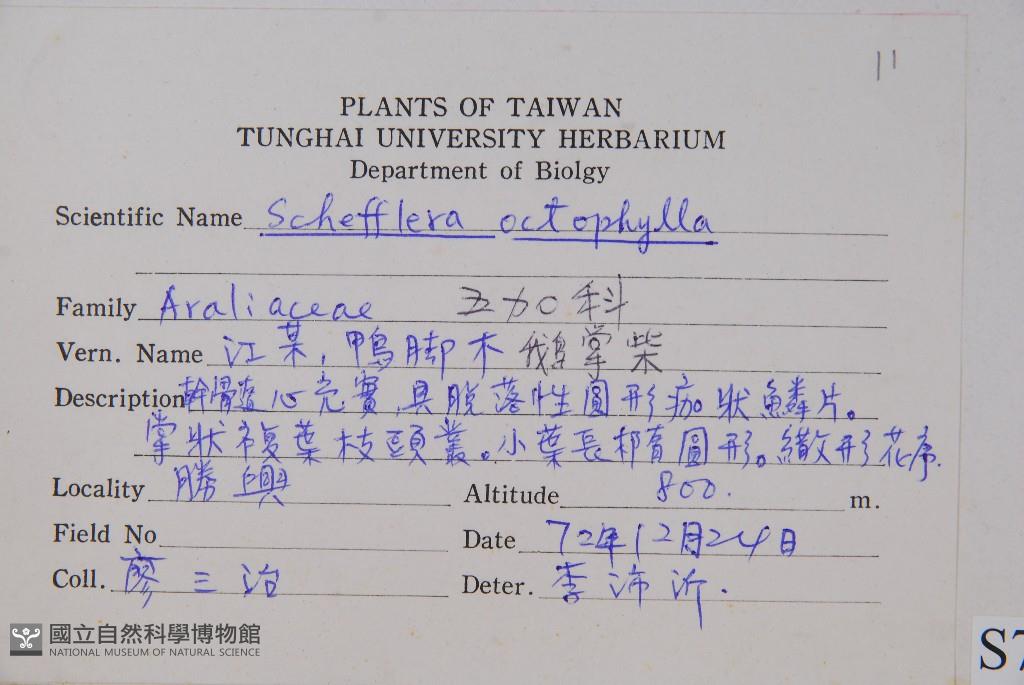 11
PLANTS OF TAIWAN
TUNGHAI UNIVERSITY HERBARIUM
Department of Biolgy
Scientific Name Schefflera octophylla
Family Araliaceae 五加科
Vern. Name 江某, 鴨脚木 鵝掌柴
Description 幹髓心充實,具脫落性圓形痂狀鱗片。
掌狀複葉枝頭叢。小葉長橢圓形。繖形花序.
Locality 勝興 Altitude 800. m.
Field No Date 72年12月24日
Coll. 廖三治 Deter. 李沛沂.
國立自然科學博物館
NATIONAL MUSEUM OF NATURAL SCIENCE
S7